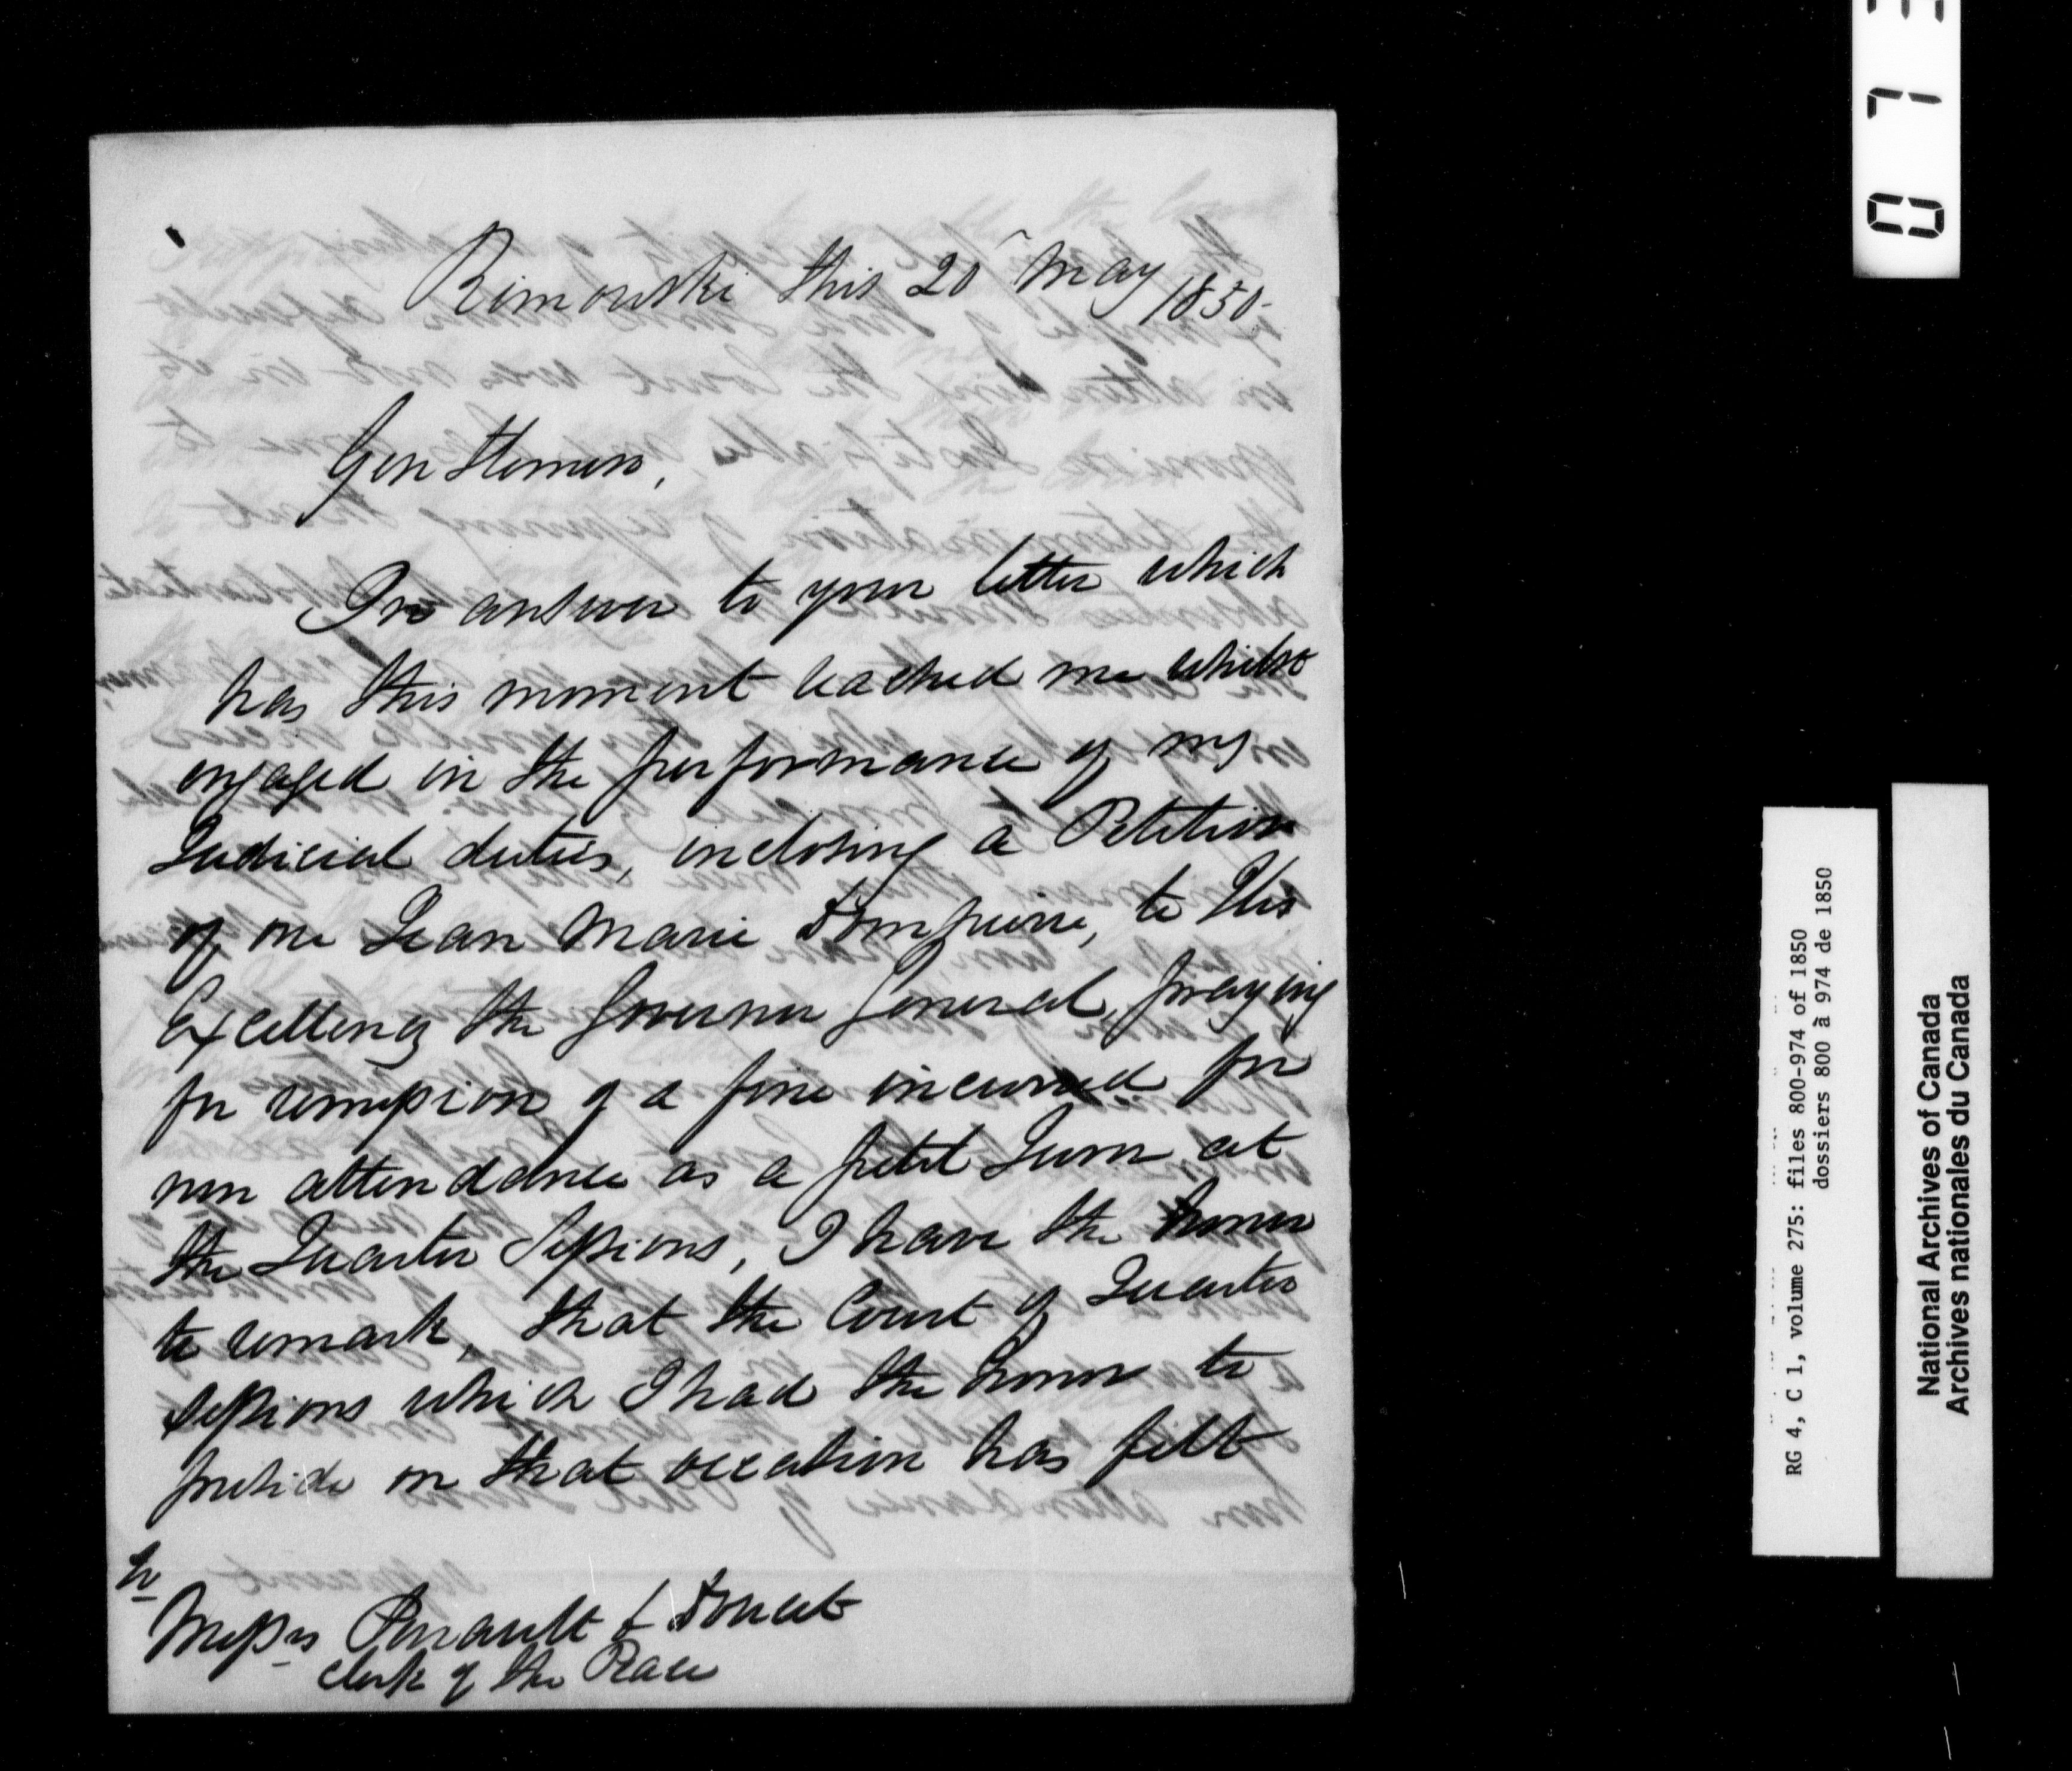 Rimouski this 20 May 1850-
Gentlemen,
In answer to your letter which
has this moment reached me whilst
engaged in the performance of my
Judicial duties, inclosing a Petition
of one Jean Marie Dompierre, to His
Excellency the Governor General, praying
for remission of a fine incurred for
non attendance as a petit Juror at
the Quarter Sessions, I have the honor
to remark, that the Court of Quarter
Sessions which I had the honor to
preside on that occasion has felt
To
Messrs Perrault & Doucet
Clerk of the Peace
073
RG 4, C 1, volume 275: files 800-974 of 1850
dossiers 800 à 974 de 1850
National Archives of Canada
Archives nationales du Canada